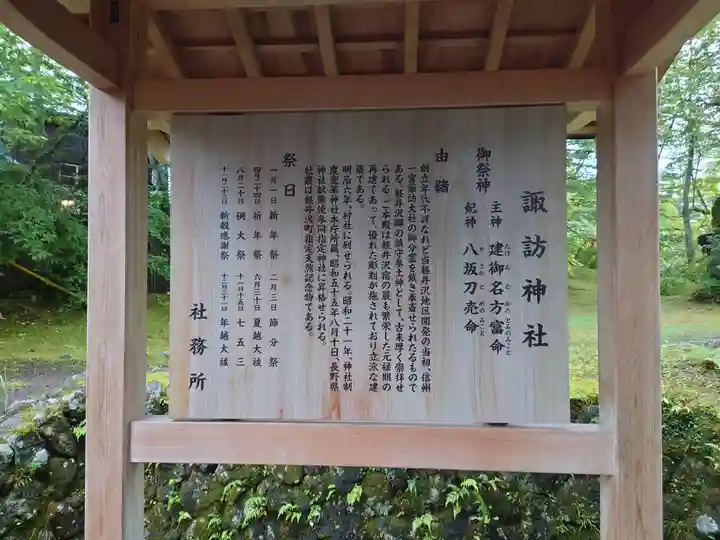 諏訪神社
御祭神
主神 建御名方富命
たけみなかたとみのみこと
妃神 八坂刀売命
やさかとめのみこと
由緒
創立年代不詳なれど当軽井沢地区開発の当初、信州
一宮諏訪大社の御分霊を戴き奉斎せられたるもので
ある。軽井沢郷の鎮守産土神として、古来厚く崇拝せ
られる。ご本殿は軽井沢宿の最も繁栄した元禄期の
再建であって、優れた彫刻が施されており立派な建
築である。
明治六年、村社に列せられる。昭和二十一年、神社制
度変革神社本庁所属、昭和五十五年八月十日、長野県
神社献幣使参向指定神社に昇格せられる。
社叢は軽井沢町指定天然記念物である。
祭日
一月一日 新年祭 二月三日 節分祭
四月二十四日 祈年祭 六月三十日 夏越大祓
八月二十日 例大祭 十一月十五日 七五三
十一月二十三日 新穀感謝祭 十二月三十一日 年越大祓
社務所